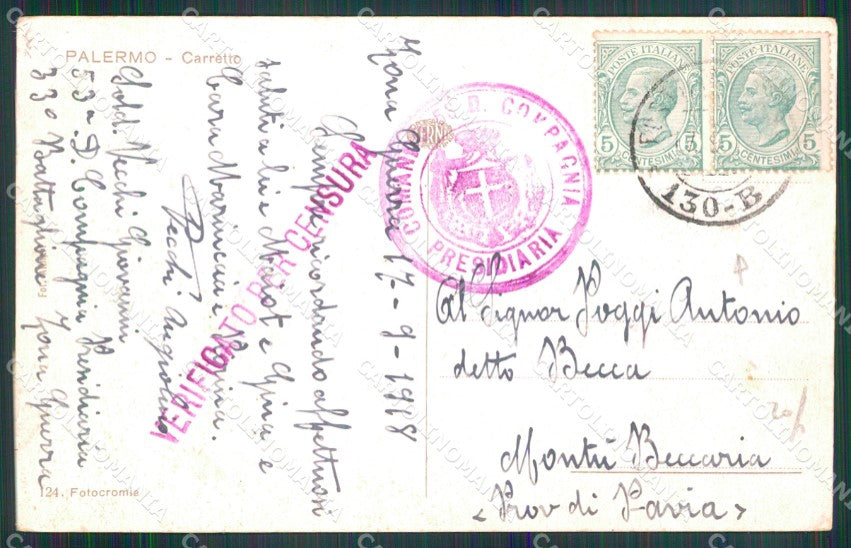 PALERMO - Carretto
Zona Guerra 17-9-1918
Sempre ricordando affettuosi
saluti a lei e Mariot e Gina e
Cara Marinca e
Vecchi Angiolino
Sold. Vecchi Giovanni
53a D. Compagnia Presidiaria
33o Battaglione Zona Guerra
VERIFICATO PER CENSURA
D. COMPAGNIA
PRESIDIARIA
POSTE ITALIANE
5 5
CENTESIMI
POSTE ITALIANE
5 5
CENTESIMI
130-B
Al Signor Poggi Antonio
detto Becca
Montù Beccaria
Prov di Pavia
124. Fotocromie
CARTOLINOMANIA